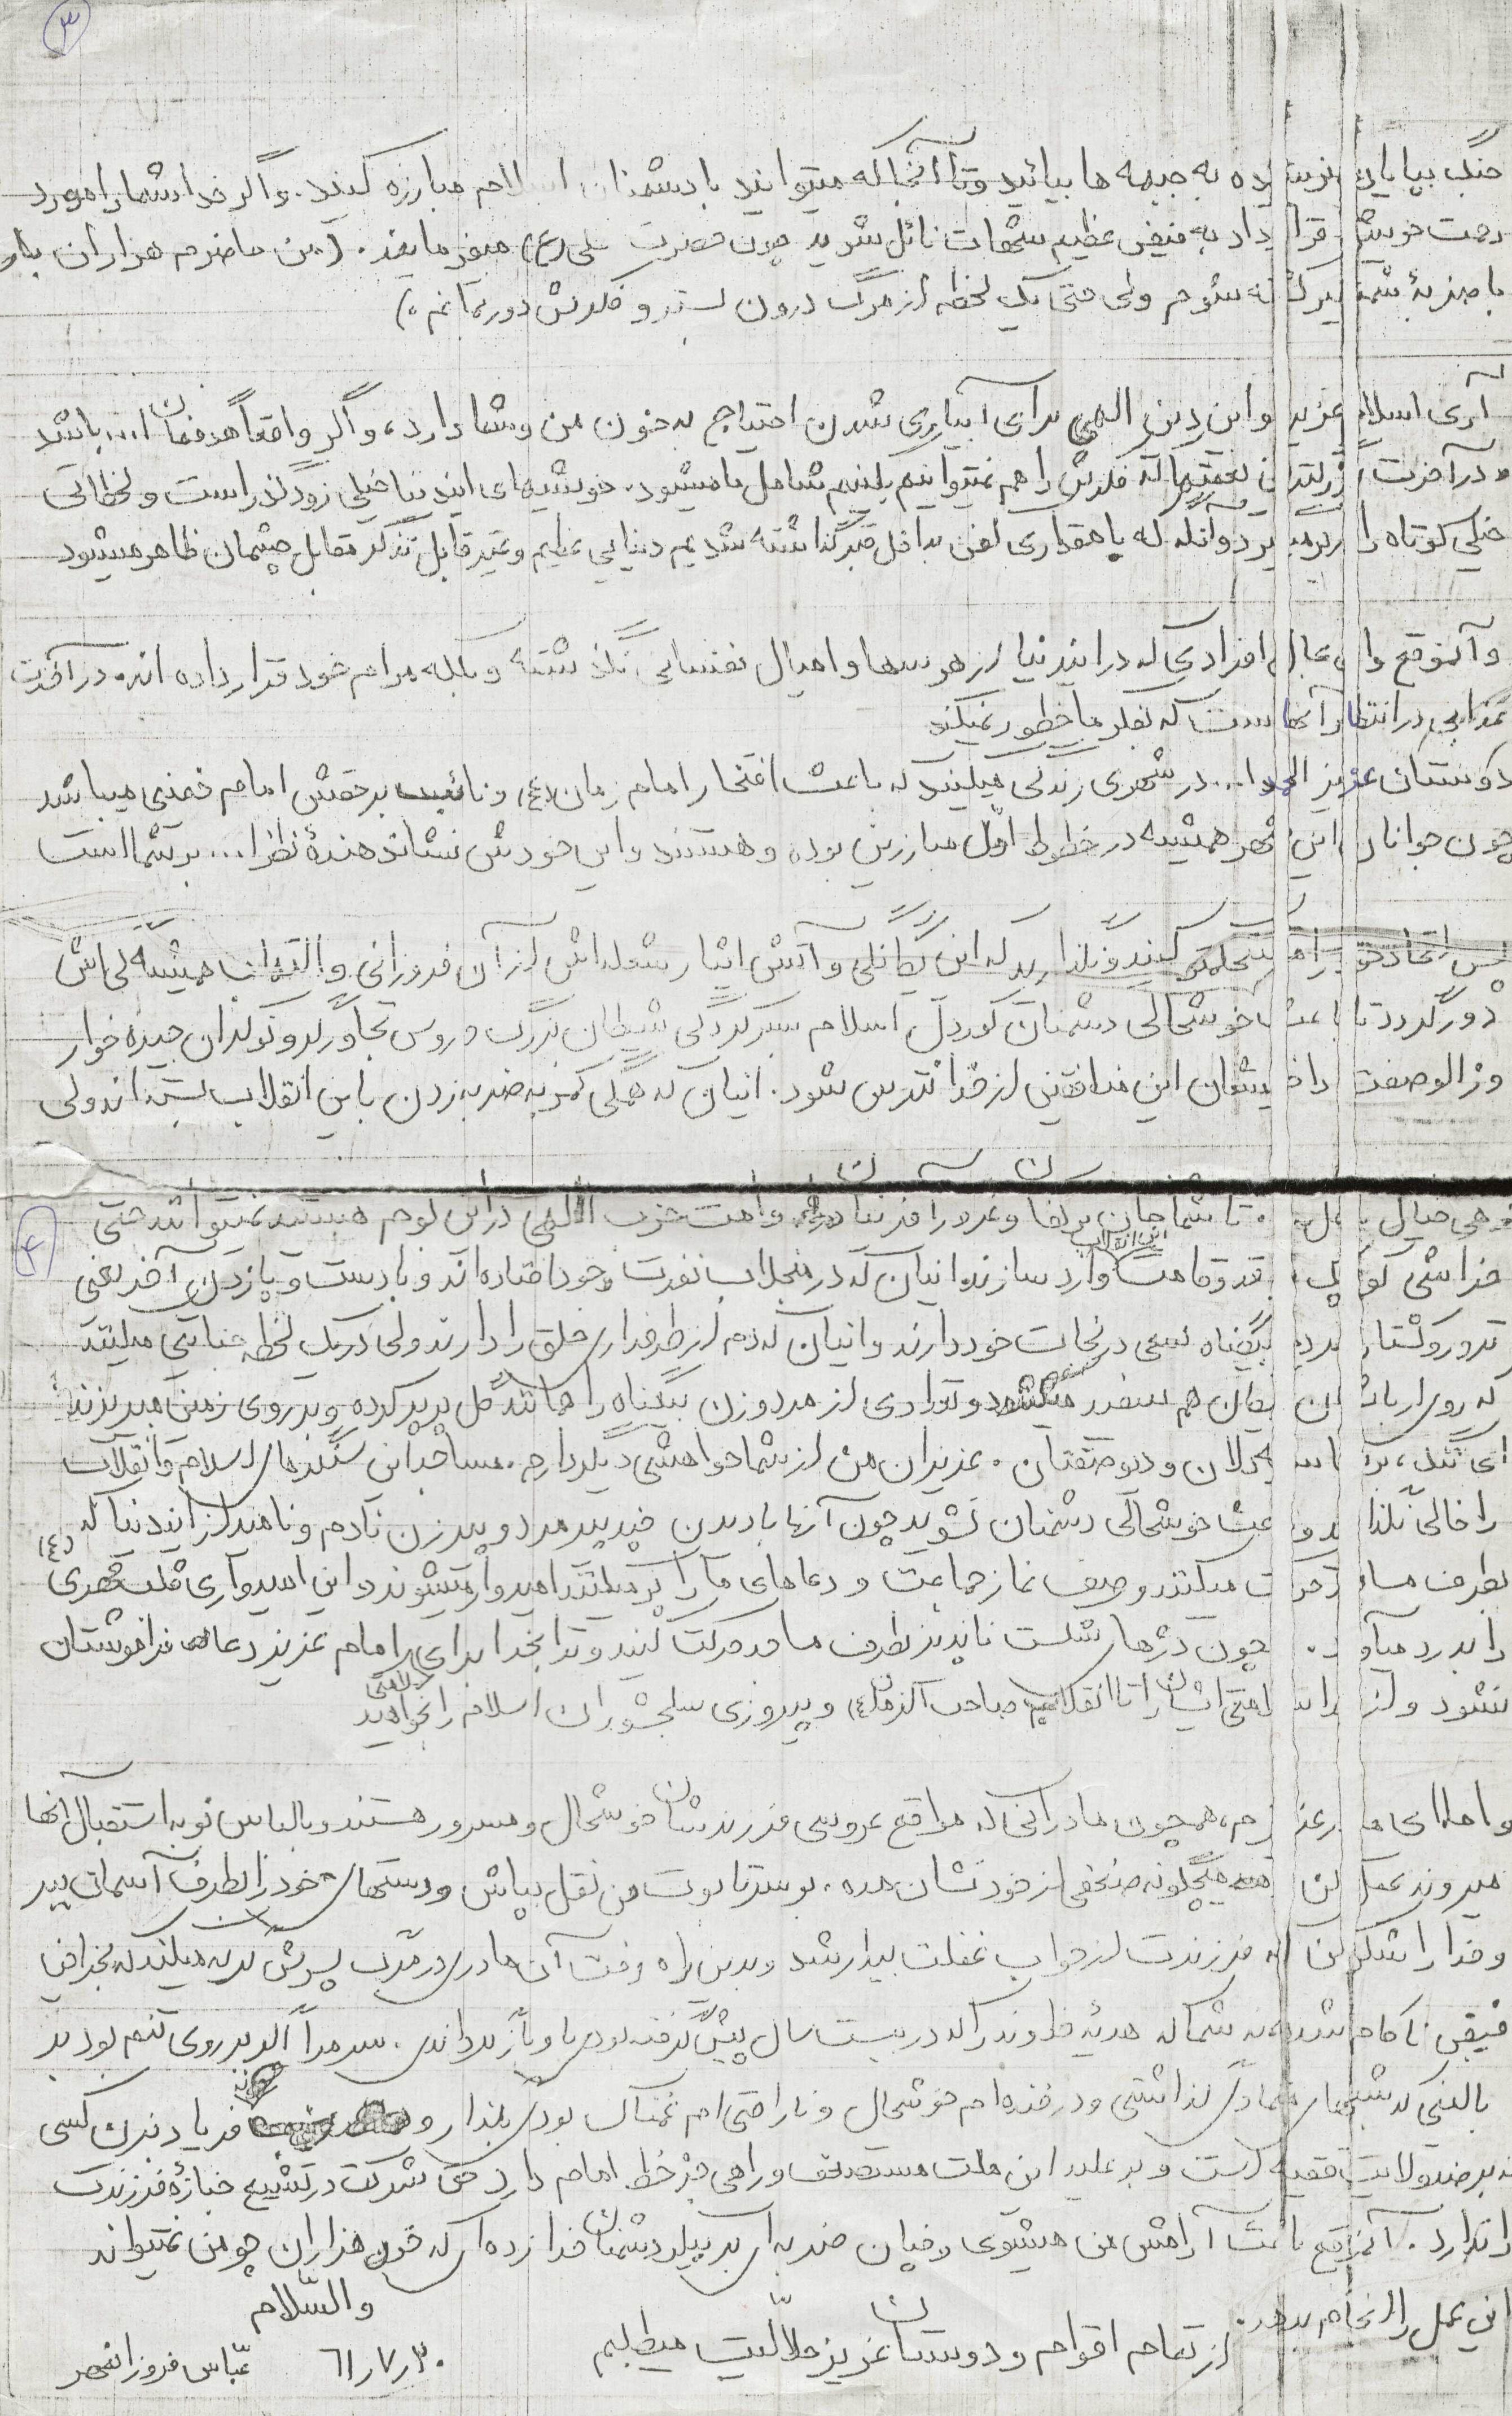 ۳
جنگ بپایان نرسیده به جبهه ها بیائید وتا آنجا که میتوانید با دشمنان اسلام مبارزه کنید. واگر خدا شما را مورد
رحمت خویش قرار داد به فیض عظیم شهادت نائل شوید چون حضرت علی (ع) میفرمایند. (من حاضرم هزاران بار
با ضربهٔ شمشیر کشته شوم ولی حتی یک لحظه از مرگ درون بستر و فکرش دور نمانم.)
آری اسلام عزیز و این دین الهی برای آبیاری شدن احتیاج به خون من و شما دارد، و اگر واقعاً هدفمان ا... باشد
در آخرت نعمتها که فکرش را هم نمیتوانیم بکنیم شامل ما میشود. خوشیهای ایندنیا خیلی زودگذر است و لحظاتی
خیلی کوتاه را که با مقداری کفن بداخل قبر گذاشته شدیم دنیایی عظیم و غیر قابل تذکر مقابل چشمان ظاهر میشود
و آنموقع وای بحال افرادی که در ایندنیا از هوسها و امیال نفسانی نگذشته و بلکه مرام خود قرار داده اند. در آخرت
عذابی در انتظار آنهاست که بفکر ما خطور نمیکند
دوستان عزیز الحمدا... در شهری زندگی میکنید که باعث افتخار امام زمان (ع) و نائب برحقش امام خمینی میباشد
چون جوانان این شهر همیشه در خطوط اوّل مبارزین بوده و هستند و این خودش نشاندهندهٔ نظر ا... بر شماست
پس اتحاد خود را مستحکمتر کنید و نگذارید که این یگانگی و آتش ایثار شعله اش از آن فروزانی و التهاب همیشگی اش
دور گردد تا باعث خوشحالی دشمنان کوردل اسلام بسرکردگی شیطان بزرگ و روس تجاوزگر و نوکران جیره خوار
و زالو صفت داخلیشان این منافقین از خدا نترس شود. اینان که همگی کمر به ضربه زدن باین انقلاب بسته اند ولی
۴
زهی خیال باطل. تا شما جان برکفان و غرورآفرینان و امت حزب اللهی در این بوم هستید نمیتوانند حتی
خراشی کوچک بر قد و قامت این انقلاب وارد سازند اینان که در منجلاب نفرت خود افتاده اند و با دست و پا زدن آخر یعنی
ترور و کشتار مردم بیگناه سعی در نجات خود دارند و اینان که دم از طرفداری خلق را دارند ولی در یک لحظه جنایتی میکنند
که روی اربابشان هم سفید میشود و تعدادی از مرد و زن بیگناه را مانند گل پرپر کرده و بر روی زمین میریزند
ای ننگ بر سیه دلان و دیو صفتان. عزیزان من از شما خواهشی دیگر دارم. مساجد این سنگرهای اسلام و انقلاب
را خالی نگذارید و باعث خوشحالی دشمنان نشوید چون آنها با دیدن چند پیرمرد و پیرزن نادم و ناامید از ایندنیا که
بطرف مساجد حرکت میکنند و صف نماز جماعت و دعاهای ما را پر میکنند امیدوار میشوند و این امیدواری قلب مهدی (ع)
را بدرد میآورد. چون دژهای شکست ناپذیر بطرف مساجد حرکت کنید و ترا بخدا برای امام عزیز دعا فراموشتان
نشود و از خدا سلامتی ایشان را تا انقلاب صاحب الزمان (ع) و پیروزی سلحشوران اسلام را بخواهید
و اما ای مادر عزیزم، همچون مادرانی که مواقع عروسی فرزندشان خوشحال و مسرور هستند و با لباس نو به استقبال آنها
میروند عمل کن هیچگونه ضعفی از خود نشان مده. بر سر تابوت من نقل بپاش و دستهای خود را بطرف آسمان ببر
و خدا را شکر کن که فرزندت از خواب غفلت بیدار شد و بدین راه رفت آن مادری در مرگ پسرش گریه میکند که بخدا فیض
فیقی ناکام شده، نه شما که هدیهٔ خداوند را که در بیست سال پیش گرفته بودی باو باز گرداندی. سرمرا اگر بر روی تنم بود بر
بالینی که شبهای متمادی گذاشتی و در خنده ام خوشحال و ناراحتی ام غمناک بودی بگذار و فریاد بزن کسی
که بر ضد ولایت فقیه است و بر علیه این ملت مستضعف و راهی جز خط امام دارد حق شرکت در تشییع جنازهٔ فرزندت
را ندارد. آنموقع باعث آرامش من میشوی و چنان ضربه ای بر پیکر دشمنان خدا زده ای که خون هزاران چو من نمیتواند
این عمل را انجام بدهد.
از تمام اقوام و دوستان عزیز حلالیّت میطلبم
والسّلام
۶۱/۷/۳۰ عبّاس فروزانمهر